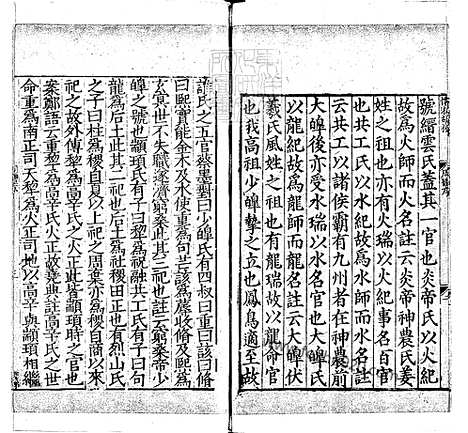 號縉雲氏蓋其一官也炎帝氏以火紀
故爲火師而火名註云炎帝神農氏姜
姓之祖也亦有火瑞以火紀事名百官
也共工氏以水紀故爲水師而水名註
云共工以諸侯霸有九州者在神農前
大皥後亦受水瑞以水名官也大皥氏
以龍紀故爲龍師而龍名註云大皥伏
羲氏風姓之祖也有龍瑞故以龍命官
也我高祖少皥摯之立也鳳鳥適至故
氏之五官蔡墨對曰少皥氏有四叔曰重曰該曰脩
曰熙實能金木及水使重爲句芒該爲蓐收脩及熙爲
玄冥世不失職遂濟窮桑此其三祀也註云窮桑帝少
皥之號也顓頊氏有子曰黎爲祝融共工氏有子曰句
龍爲后土此其二祀也后土爲社稷田正也有烈山氏
之子曰柱爲稷自夏以上祀之周棄亦爲稷自商以來
祀之故外傳黎爲高辛氏火正此皆顓頊時之官也
案鄭語云重黎爲高辛氏火正故堯典註高辛氏之世
命重爲南正司天黎爲火正司地以高辛與顓頊相繼